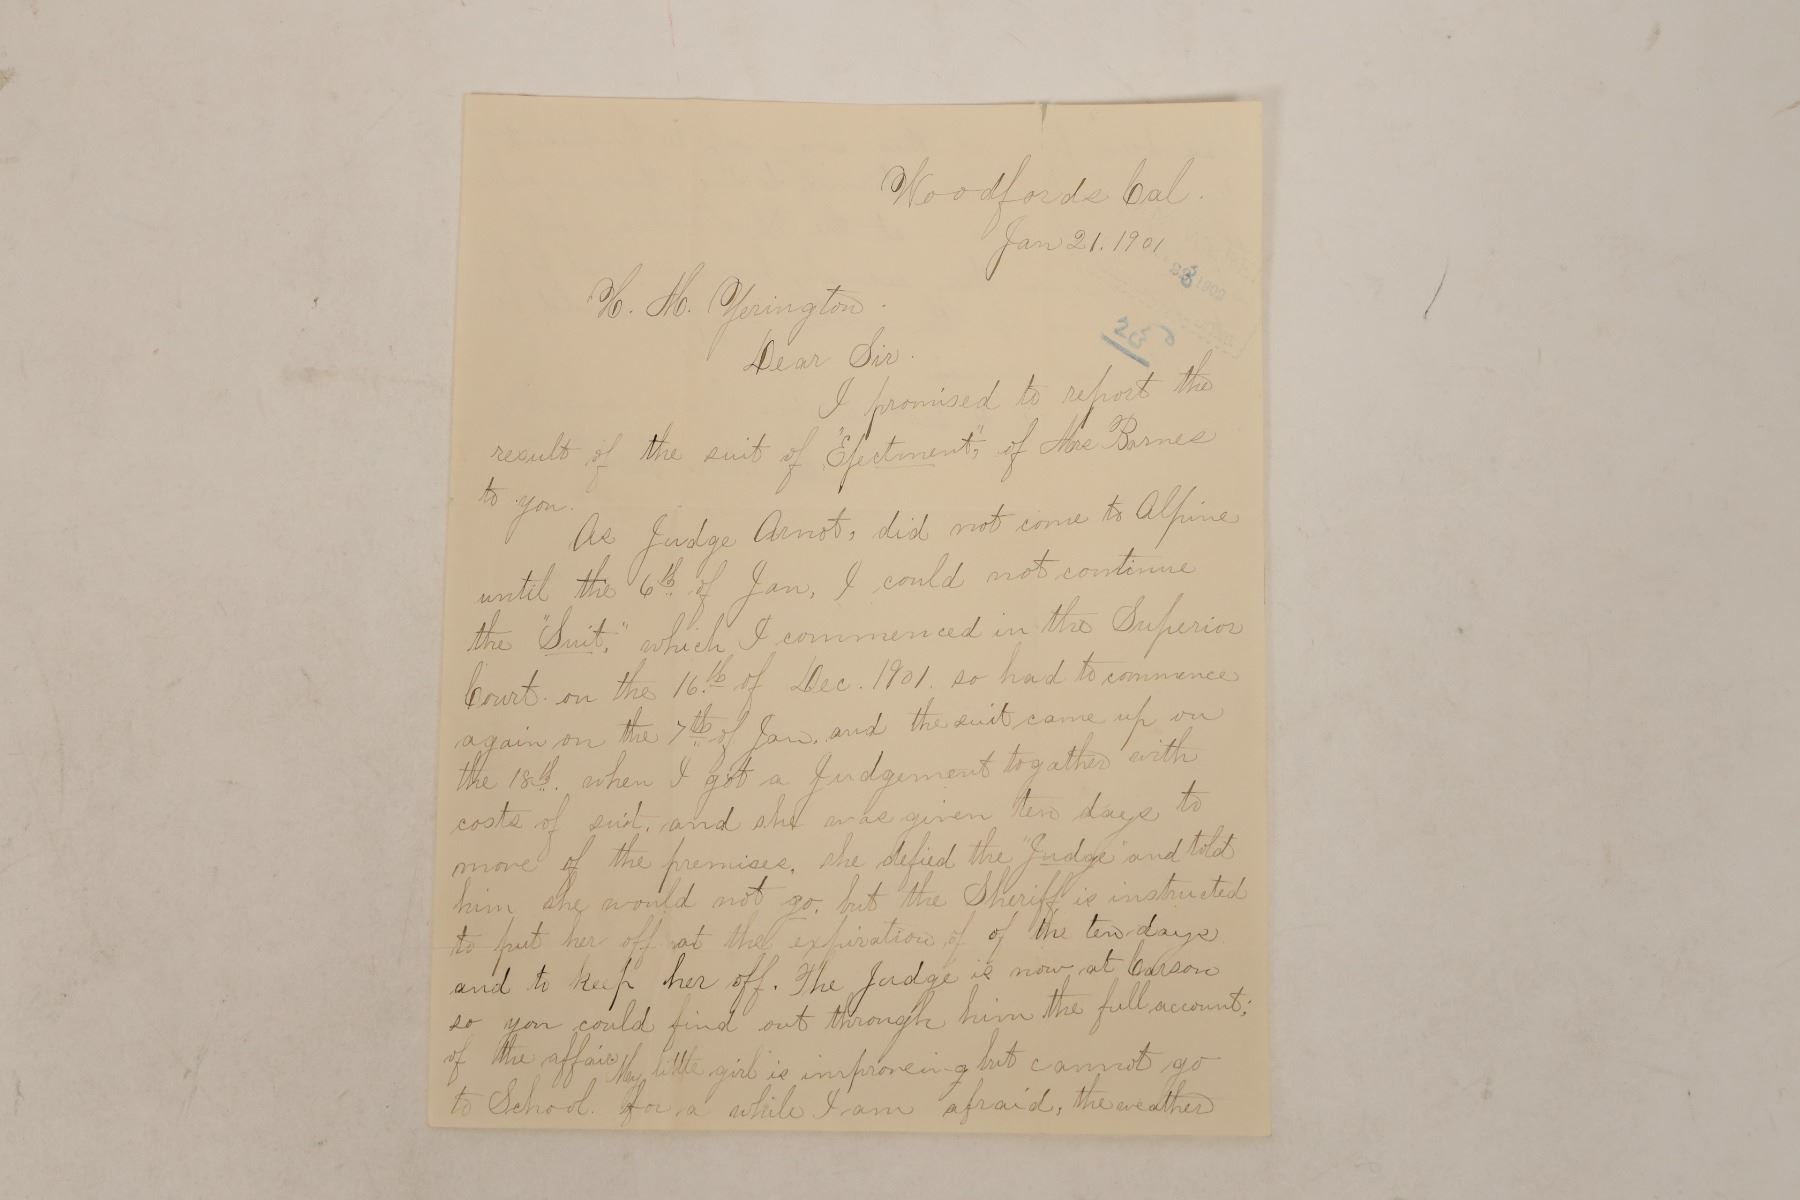 Woodfords Cal.
Jan 21. 1901
1902
250
H. M. Yerington.
Dear Sir.
I promised to report the
result of the suit of "Ejectment", of Mrs Barnes
to you.
As Judge Arnot, did not come to Alpine
until the 6th of Jan, I could not continue
the "Suit," which I commenced in the Superior
Court on the 16th of Dec. 1901. so had to commence
again on the 7th of Jan. and the suit came up on
the 18th. when I got a Judgement togather with
costs of suit. and she was given ten days to
move of the premises, she defied the "Judge" and told
him she would not go. but the Sheriff is instructed
to put her off at the expiration of of the ten days
and to keep her off. The Judge is now at Carson
so you could find out through him the full account;
of the affair. My little girl is improveing but cannot go
to School. for a while I am afraid, the weather